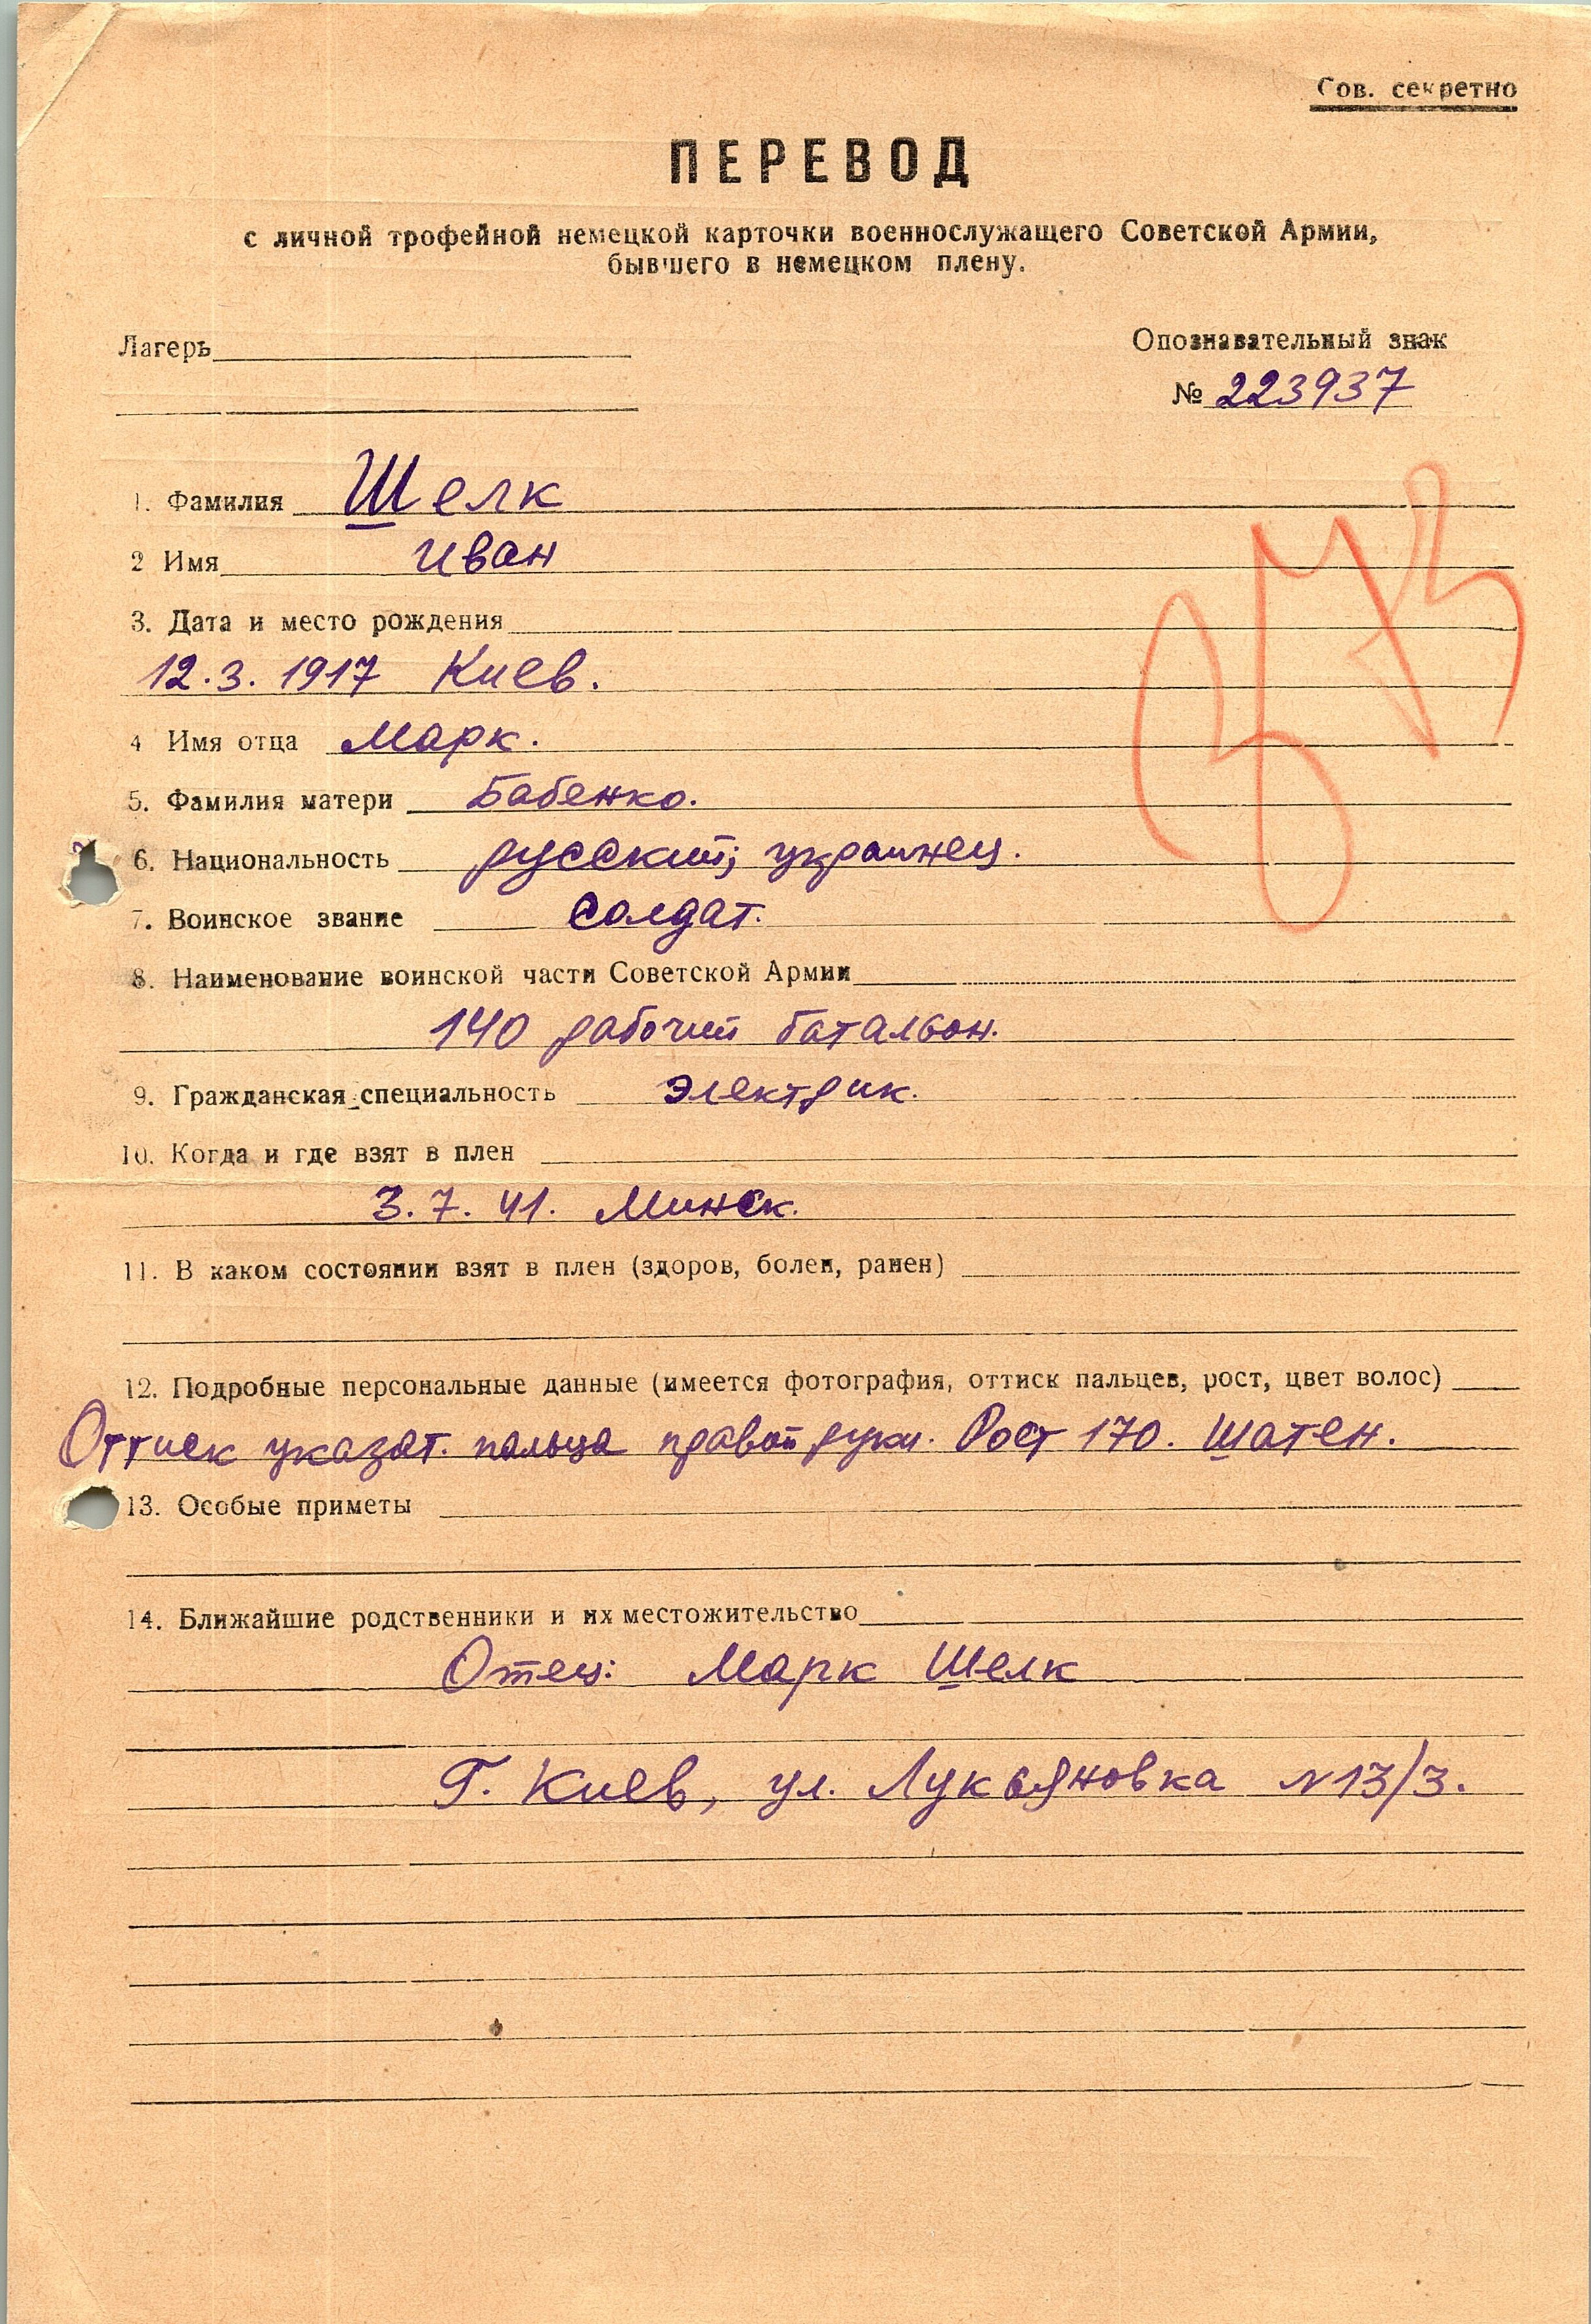 Сов. секретно
ПЕРЕВОД
с личной трофейной немецкой карточки военнослужащего Советской Армии,
бывшего в немецком плену.
Лагерь
Опознавательный знак
№ 223937
1. Фамилия Шелк
2 Имя Иван
3. Дата и место рождения
12.3.1917 Киев.
4 Имя отца Марк.
5. Фамилия матери Бабенко.
6. Национальность русский; украинец.
7. Воинское звание солдат.
8. Наименование воинской части Советской Армии
140 рабочий батальон.
9. Гражданская специальность электрик.
10. Когда и где взят в плен
3.7.41. Минск.
11. В каком состоянии взят в плен (здоров, болен, ранен)
12. Подробные персональные данные (имеется фотография, оттиск пальцев, рост, цвет волос)
Оттиск указат. пальца правой руки. Рост 170. Шатен.
13. Особые приметы
14. Ближайшие родственники и их местожительство
Отец: Марк Шелк
Г. Киев, ул. Лукьяновка N13/3.